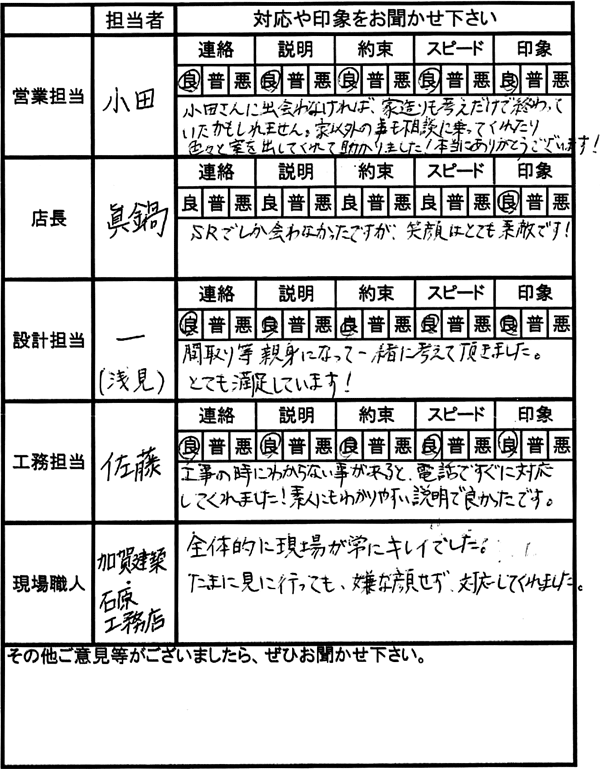 担当者 対応や印象をお聞かせ下さい
営業担当 小田
連絡 説明 約束 スピード 印象
良 普 悪 良 普 悪 良 普 悪 良 普 悪 良 普 悪
小田さんに出会わなければ、家造りも考えだけで終わって
いたかもしれません。家以外の事も相談に乗ってくれたり
色々と案を出してくれて助かりました!本当にありがとうございます!
店長 眞鍋
連絡 説明 約束 スピード 印象
良 普 悪 良 普 悪 良 普 悪 良 普 悪 良 普 悪
SRでしか会わなかったですが、笑顔はとても素敵です!
設計担当 一
(浅見)
連絡 説明 約束 スピード 印象
良 普 悪 良 普 悪 良 普 悪 良 普 悪 良 普 悪
間取り等親身になって一緒に考えて頂きました。
とても満足しています!
工務担当 佐藤
連絡 説明 約束 スピード 印象
良 普 悪 良 普 悪 良 普 悪 良 普 悪 良 普 悪
工事の時にわからない事が来ると、電話ですぐに対応
してくれました!素人にもわかりやすい説明で良かったです。
現場職人 加賀建築
・
石原
工務店
全体的に現場が常にキレイでした。
たまに見に行っても、嫌な顔せず、対応してくれました。
その他ご意見等がございましたら、ぜひお聞かせ下さい。